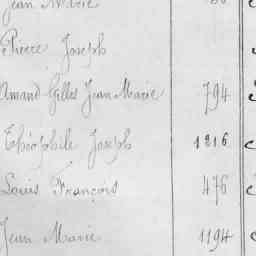 Jean Marie
Pierre Joseph
Amand Gilles Jean Marie 794
Théophile Joseph 1216
Louis François 476
Jean Marie 1194